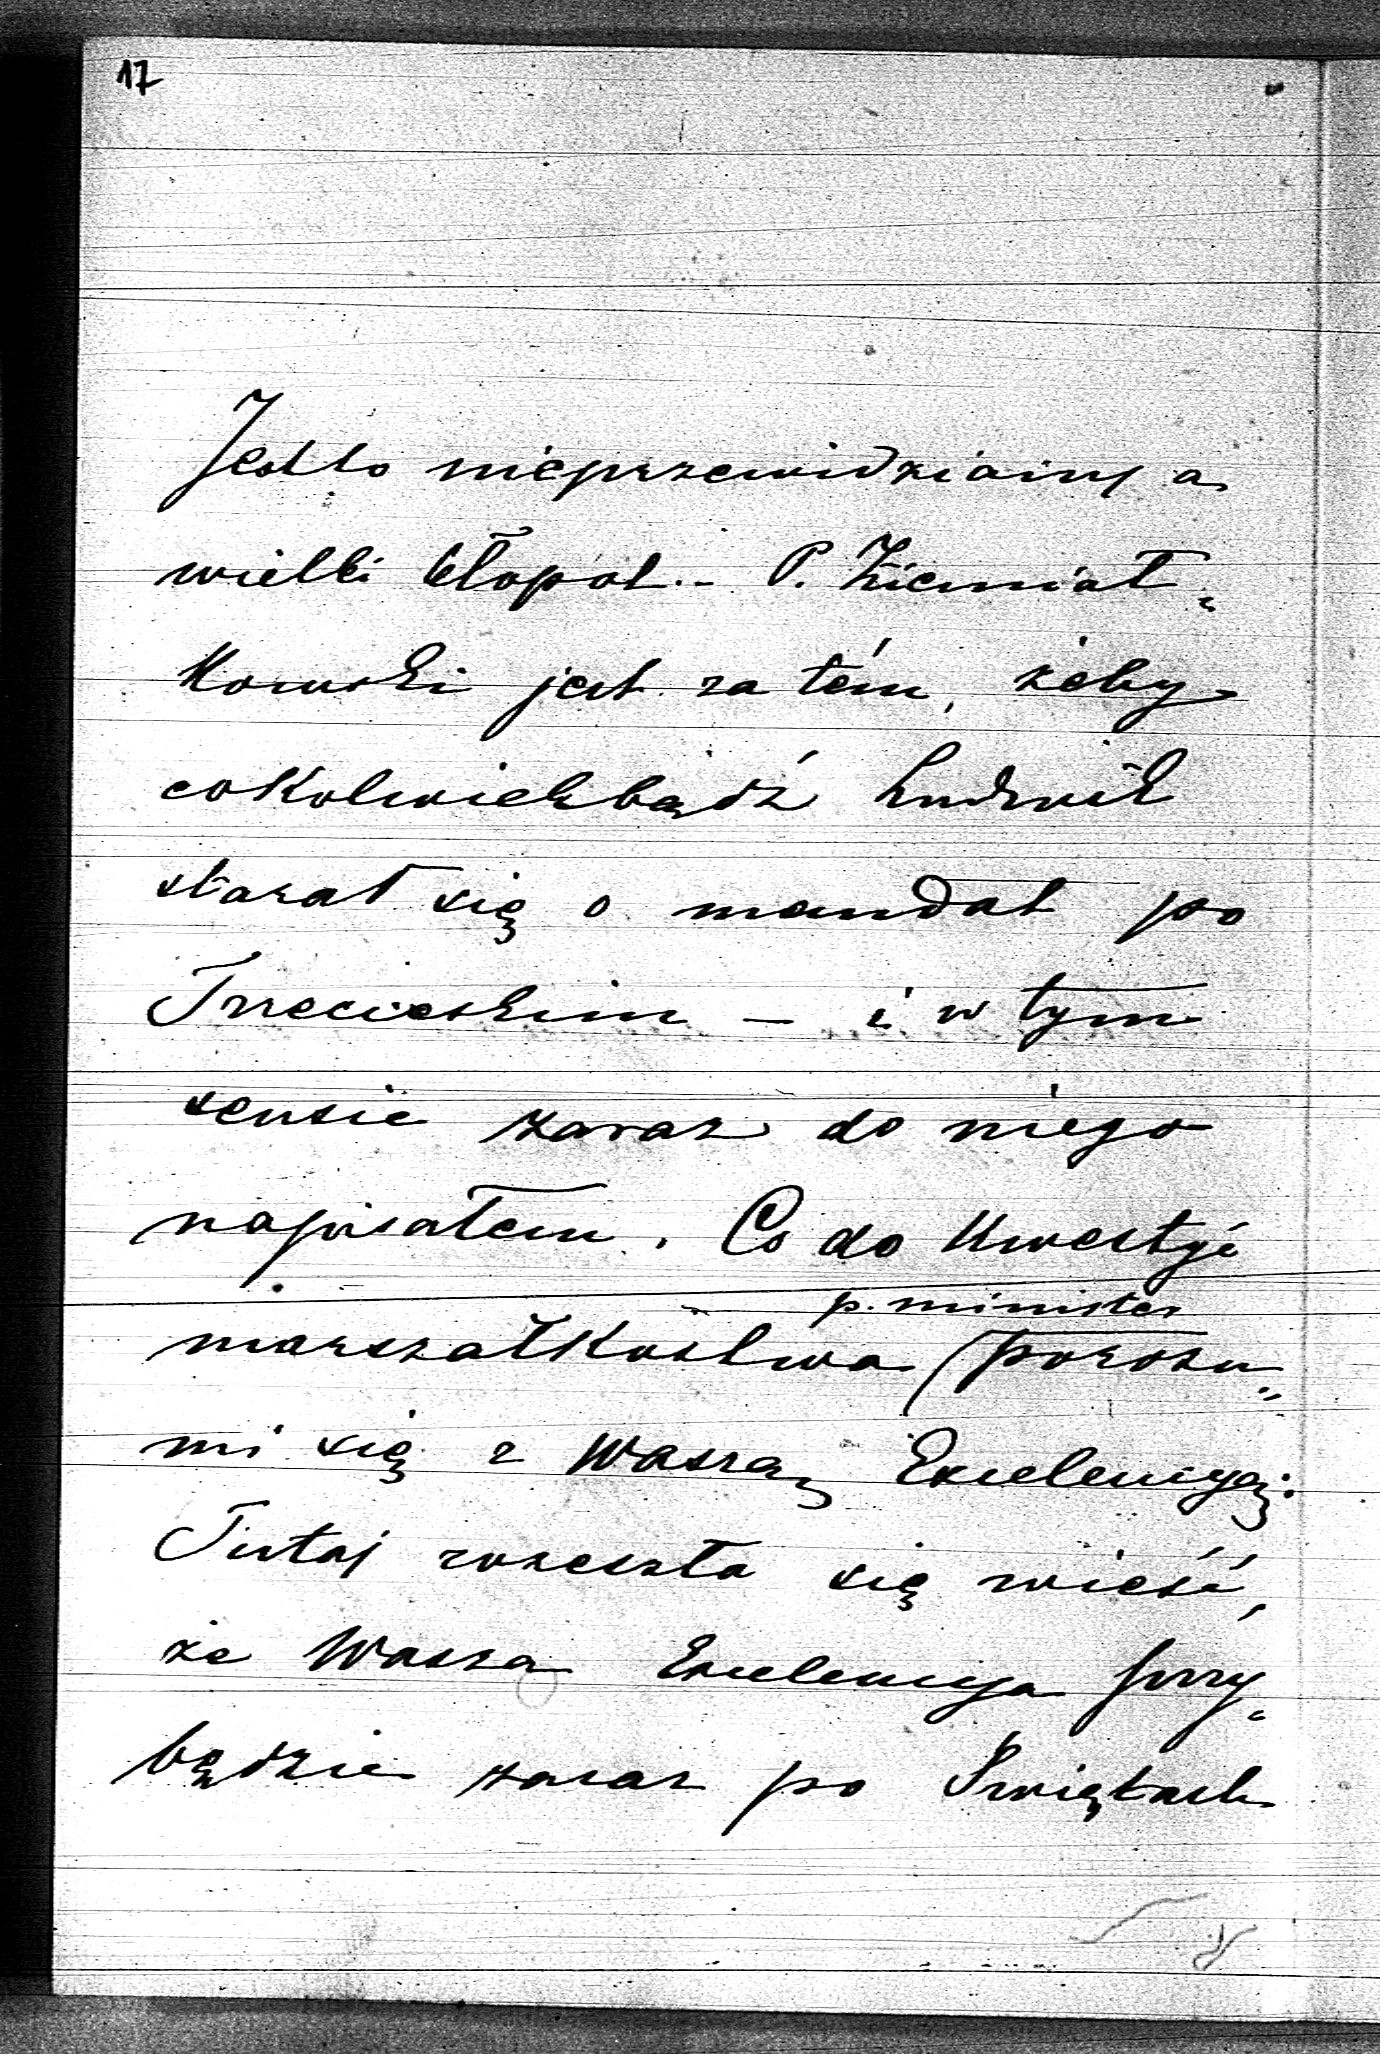 17
Jestto nieprzewidziany a
wielki kłopot. – P. Ziemiał„
kowski jest za tém, żeby
cokolwiekbądź Ludwik
starał się o mandat po
Trzecieskim – i w tym
sensie zaraz do niego
napisałem. Co do kwestyi
p. minister
marszałkostwa (porozu„
mi się z Waszą Excelencyą.
Tutaj rozeszła się wieść,
że Wasza Excelencya przy„
będzie zaraz po Świętach